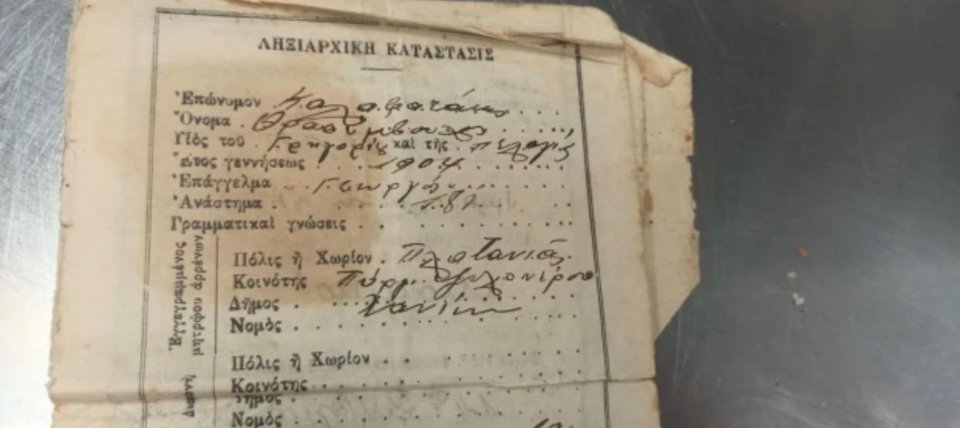 ΛΗΞΙΑΡΧΙΚΗ ΚΑΤΑΣΤΑΣΙΣ
Ἐπώνυμον Καλαφατάκης
Ὄνομα Θρασύβουλος
Υἱὸς τοῦ Γρηγορίου καὶ τῆς Πελαγί
Ἔτος γεννήσεως 1904
Ἐπάγγελμα Γεωργός
Ἀνάστημα 1.81
Γραμματικαὶ γνώσεις
Ἐγγεγραμμένος
μητρῴου ἀρρένων
Πόλις ἢ Χωρίον Πλατανιάς
Κοινότης
Δῆμος Χανίων
Νομὸς
Πόλις ἢ Χωρίον
Κοινότης
Δῆμος
Νομὸς